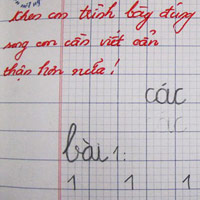 trình bày đúng
song con cần viết cẩn
thận hơn nữa!
các
bài 1:
1 1 1